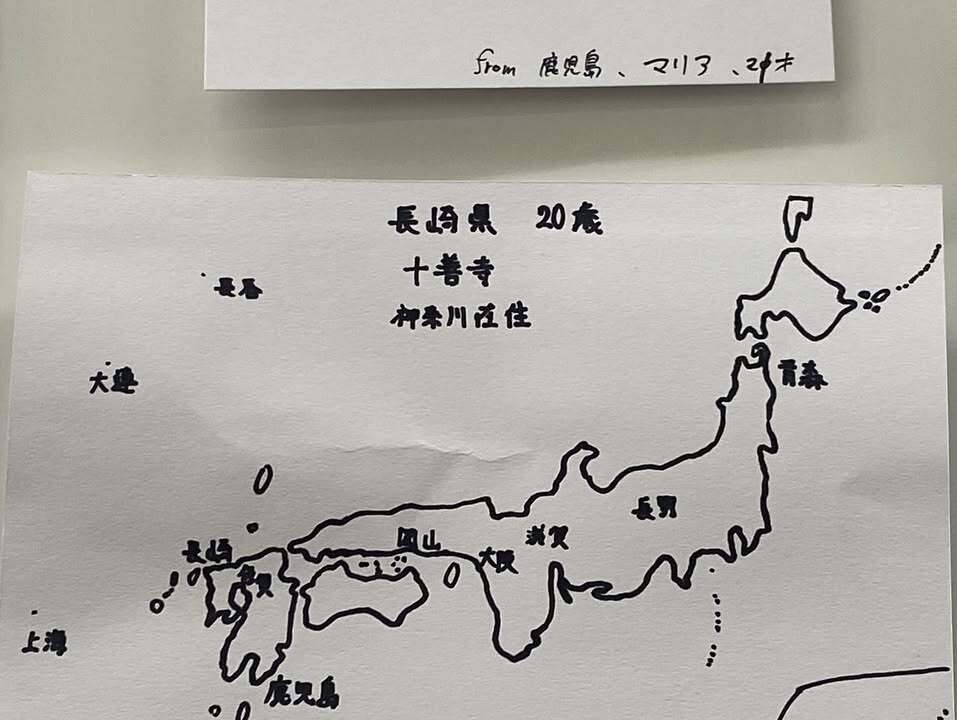 from 鹿児島、マリア、24才
長崎県 20歳
十善寺
神奈川在住
長春
大連
青森
長野
滋賀
岡山
大阪
長崎
佐賀
上海
鹿児島